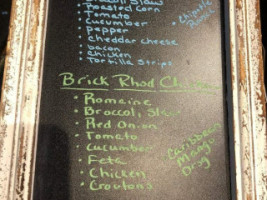 Broccoli Slaw
Roasted Corn
Tomato
Cucumber
pepper
cheddar cheese
bacon
chicken
Tortilla Strips
Chipotle
Brick Rhod
Romaine
Broccoli Slaw
Red Onion
Tomato
Cucumber
Feta
Chicken
Croutons
Caribbean
Mango
Drsg